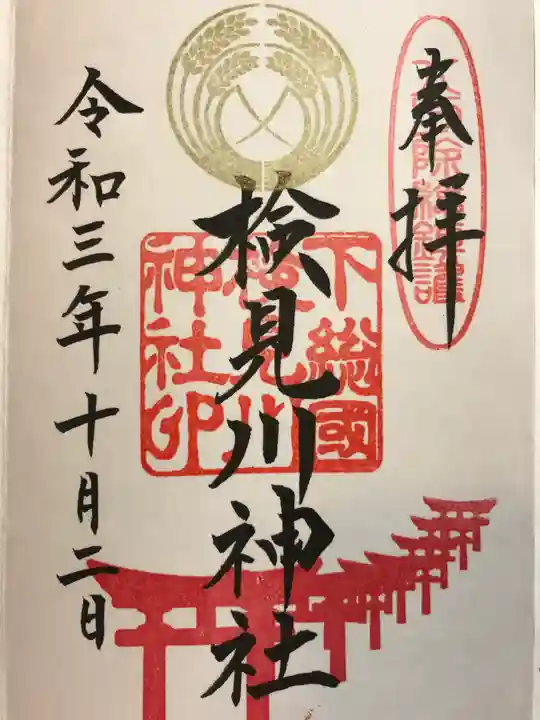 奉拝
下総國
検見川
神社印
検見川神社
令和三年十月二日